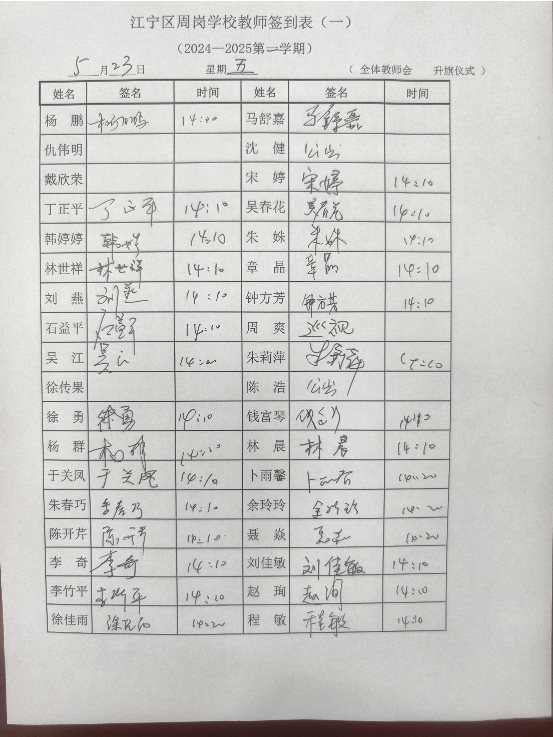 江宁区周岗学校教师签到表（一）
（2024—2025第二学期）
5月23日 星期五 （ 全体教师会 升旗仪式 ）
姓名 签名 时间 姓名 签名 时间
杨鹏 杨鹏 14:00 马舒嘉 马舒嘉
仇伟明 沈健 公出
戴欣荣 宋婷 宋婷 14:10
丁正平 丁正平 14:10 吴春花 吴春花 14:10
韩婷婷 14:10 朱姝 朱姝 14:10
林世祥 林世祥 14:10 章晶 章晶 14:10
刘燕 刘燕 14:10 钟方芳 钟方芳 14:10
石益平 石益平 14:10 周爽 巡视
吴江 吴江 14:20 朱莉萍 朱莉萍
徐传果 陈浩 公出
徐勇 徐勇 14:10 钱富琴 14:10
杨群 杨群 14:10 林晨 林晨 14:10
于关凤 于关凤 14:10 卜雨馨 14:20
朱春巧 朱春巧 14:10 余玲玲 余玲玲 14:20
陈开芹 陈开芹 14:10 聂焱 14:20
李奇 李奇 14:10 刘佳敏 刘佳敏 14:10
李竹平 李竹平 14:10 赵珣 赵珣 14:10
徐佳雨 14:20 程敏 程敏 14:10